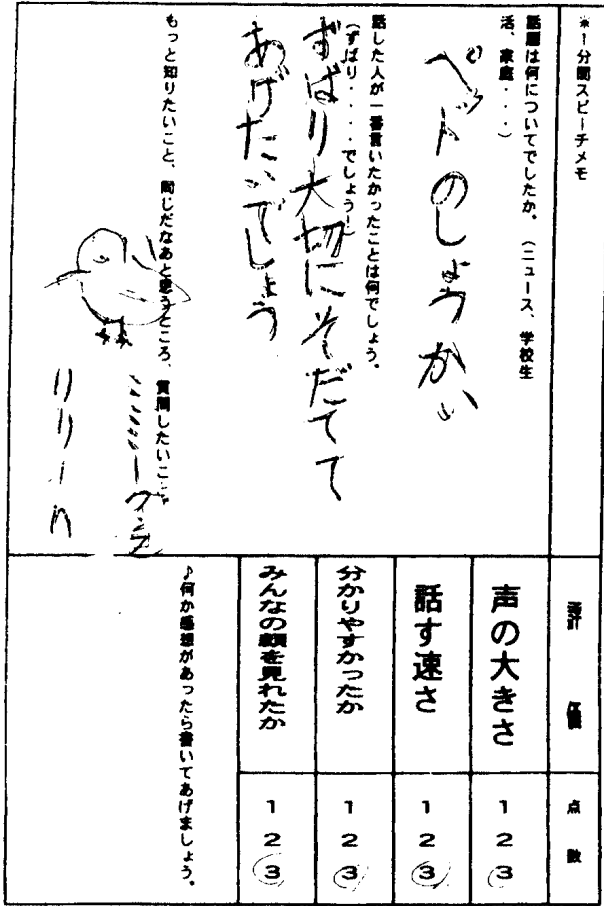 ※1分間スピーチメモ
話題は何についてでしたか。（ニュース、学校生
活、家庭・・・）
ペットのしょうかい
話した人が一番言いたかったことは何でしょう。
（ずばり・・・・でしょう！）
ずばり大切にそだてて
あげたいでしょう
もっと知りたいこと、同じだなあと思うところ、質問したいこ
リリーn
評価
点数
声の大きさ
1 2 3
話す速さ
1 2 3
分かりやすかったか
1 2 3
みんなの顔を見れたか
1 2 3
♪何か感想があったら書いてあげましょう。